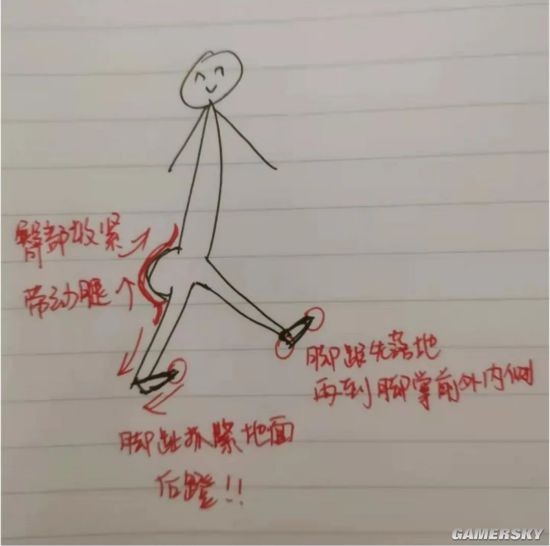 臀部收紧
带动腿
脚跟先落地
再到脚掌前外内侧
脚趾抓紧地面
后蹬!!
GAMERSKY